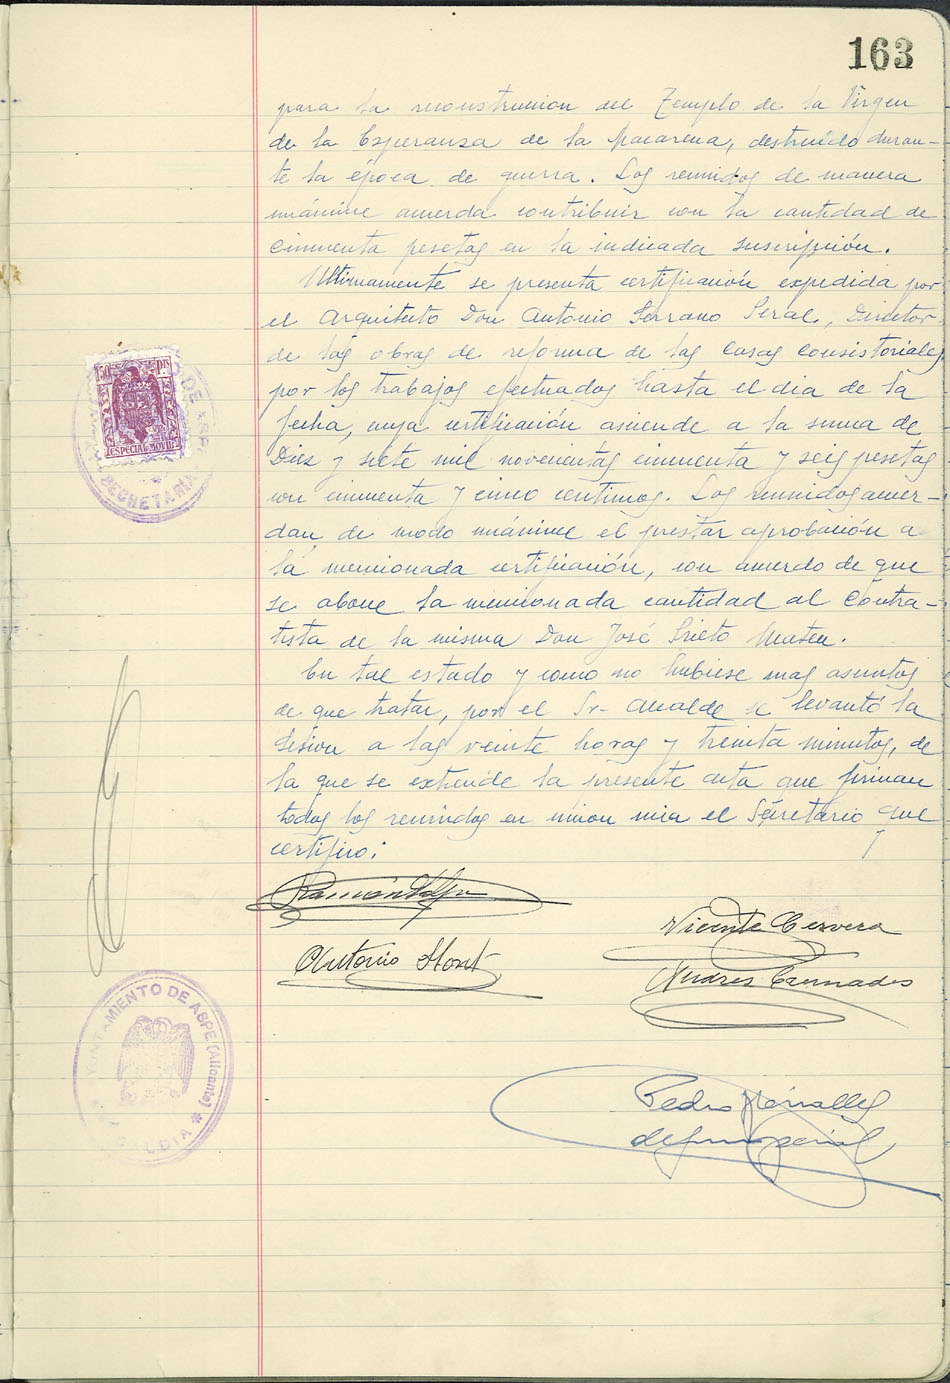 163
para la reconstrucción del Templo de la Virgen
de la Esperanza de la Macarena, destruído duran-
te la época de guerra. Los reunidos de manera
unánime acuerda contribuir con la cantidad de
cincuenta pesetas en la indicada suscripción.
Ultimamente se presenta certificación expedida por
el Arquitecto Don Antonio Serrano Peral, Director
de las obras de reforma de las Casas Consistoriales
por los trabajos efectuados hasta el dia de la
fecha, cuya certificación asciende a la suma de
Diez y siete mil novecientas cincuenta y seis pesetas
con cincuenta y cinco centimos. Los reunidos acuer-
dan de modo unánime el prestar aprobación a
la mencionada certificación, con acuerdo de que
se abone la mencionada cantidad al Contra-
tista de la misma Don José Prieto
En tal estado y como no hubiese mas asuntos
de que tratar, por el Sr. Alcalde se levantó la
sesion a las veinte horas y treinta minutos, de
la que se extiende la presente acta que firman
todos los reunidos en union mia el Secretario que
certifico:
1'50 PTS
ESPECIAL MOVIL
SECRETARIA
Ramón
Vicente Cervera
Antonio
Andres
AYUNTAMIENTO DE ASPE (Alicante)
ALCALDIA
Pedro